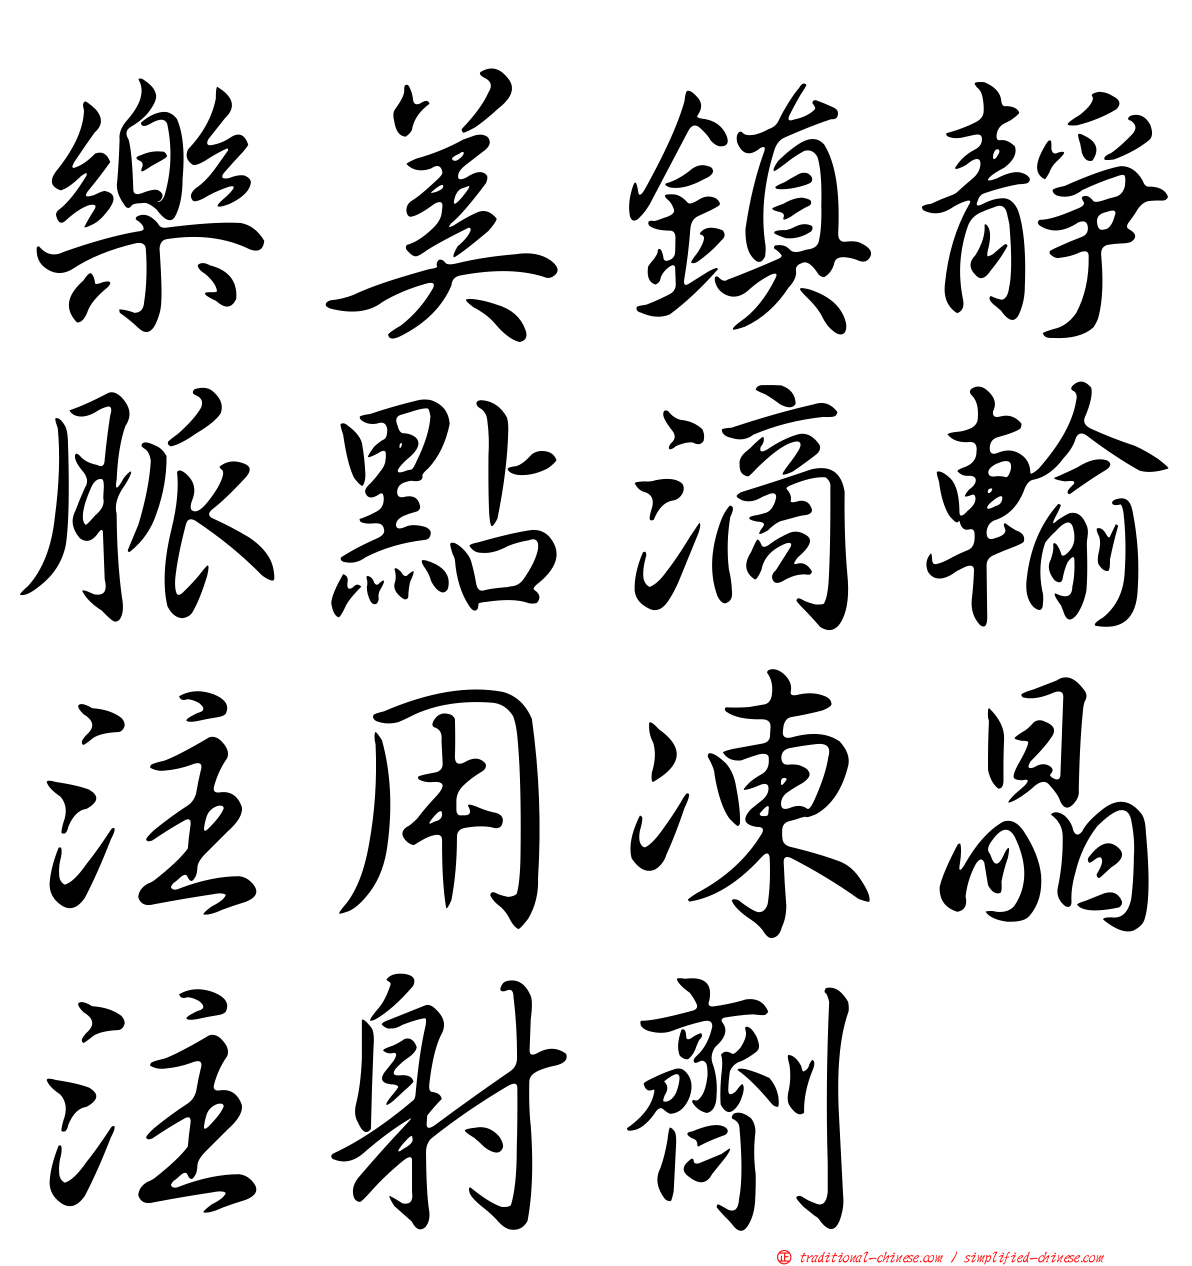 樂美鎮靜
脈點滴輸
注用凍晶
注射劑
正 traditional-chinese.com / simplified-chinese.com